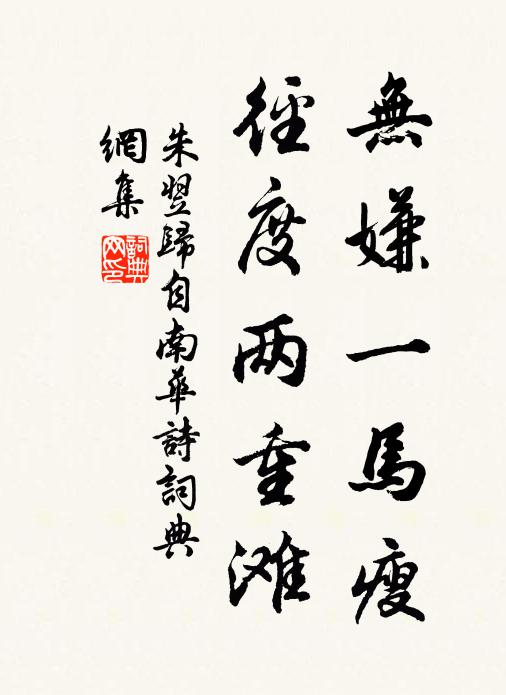 無嫌一馬瘦
徑度两重滩
朱翌歸自南華詩詞典
網集
詞典网印